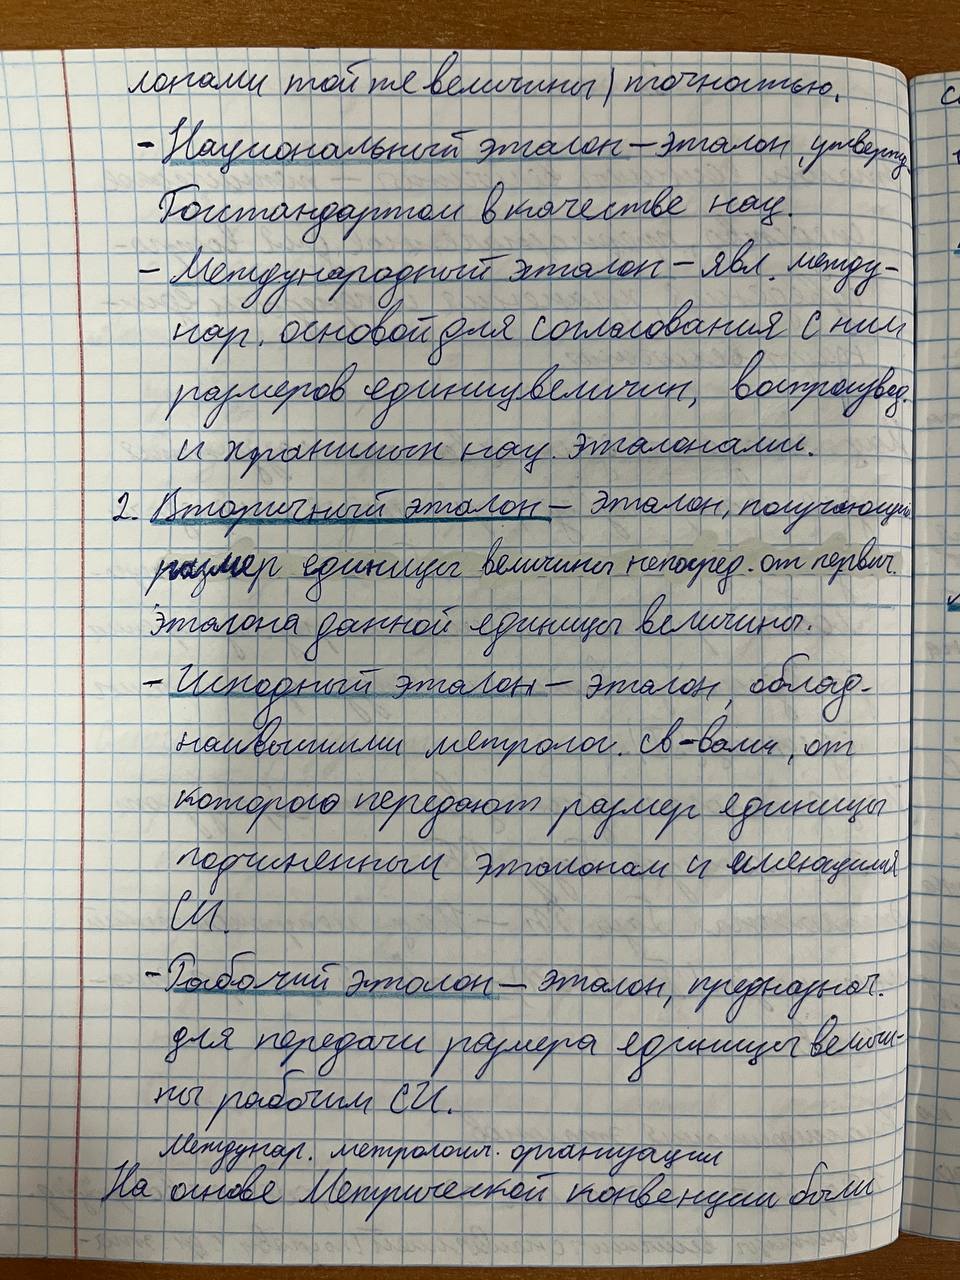 лонами той же величины) точностью.
- Национальный эталон - эталон, утвержд.
Госстандартом в качестве нац.
- Международный эталон - явл. между-
нар. основой для согласования с ним
размеров единиц величин, воспроизвед.
и хранимых нац. эталонами.
2. Вторичный эталон - эталон, получающий
размер единицы величины непосред. от первич.
эталона данной единицы величины.
- Исходный эталон - эталон, облад.
наивысшими метролог. св-вами, от
которого передают размер единицы
подчиненным эталонам и имеющимся
СИ.
- Рабочий эталон - эталон, предназнач.
для передачи размера единицы величи-
ны рабочим СИ.
Междунар. метрологич. организации
На основе Метрической конвенции были